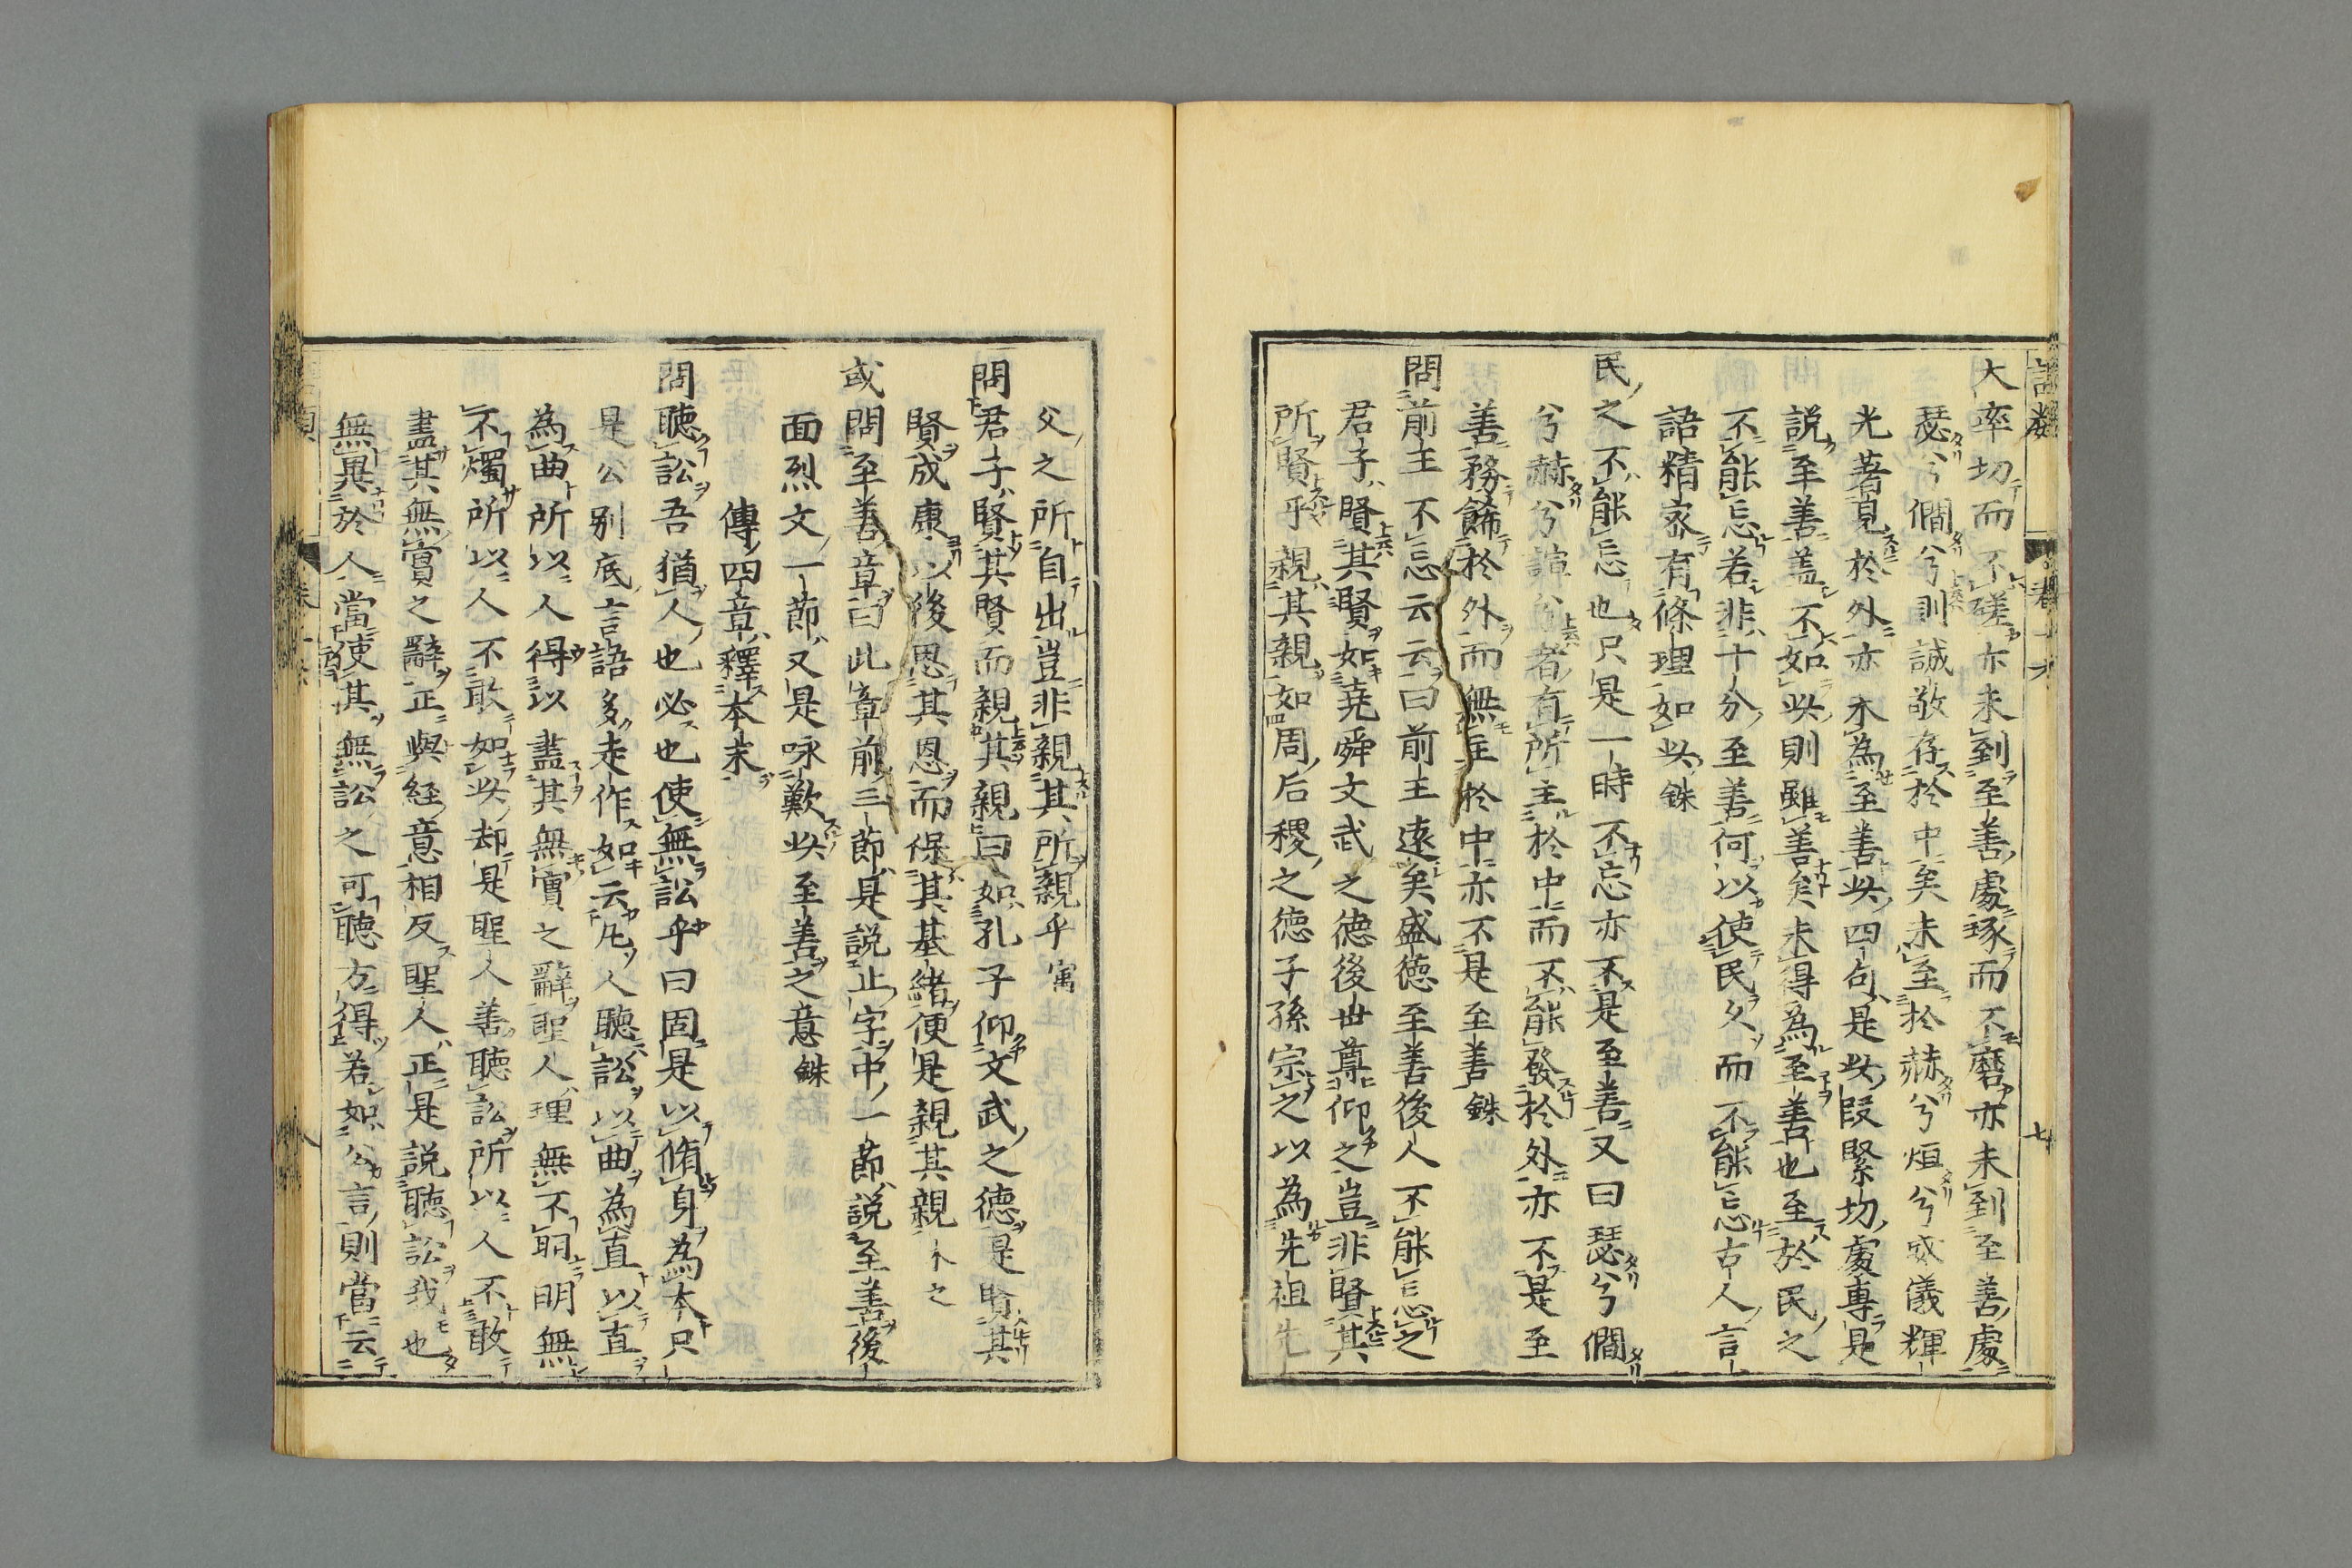 大率切而不磋亦未到至善處琢而不磨亦未到至善處
瑟兮僩兮則誠敬存於中矣未至於赫兮烜兮威儀輝
光著見於外亦未為至善此四句是此段緊切處專是
説至善蓋不如此則雖善矣未得為至善也至於民之
不能忘若非十分至善何以使民久而不能忘古人言
語精密有條理如此銖
民之不能忘也只是一時不忘亦不是至善又曰瑟兮僩
兮赫兮諠兮者有所主於中而不能發於外亦不是至
善務餙於外而無主於中亦不是至善銖
問前王不忘云云曰前王遠矣盛德至善後人不能忘之
君子賢其賢如堯舜文武之德後世尊仰之豈非賢其
所賢乎親其親如周后稷之德子孫宗之以為先祖先
父之所自出豈非親其所親乎㝢
問君子賢其賢而親其親曰如孔子仰文武之德是賢其
賢成康以後思其恩而保其基緒便是親其親木之
或問至善章曰此章前三節是説止字中一節説至善後
面烈文一節又是咏歎此至善之意銖
傳四章釋本末
問聽訟吾猶人也必也使無訟乎曰固是以脩身為本只
是公别底言語多走作如云凡人聽訟以曲為直以直
為曲所以人得以盡其無實之辭聖人理無不明明無
不燭所以人不敢如此却是聖人善聽訟所以人不敢
盡其無實之辭正與經意相反聖人正是説聽訟我也
無異於人當使其無訟之可聽方得若如公言則當云